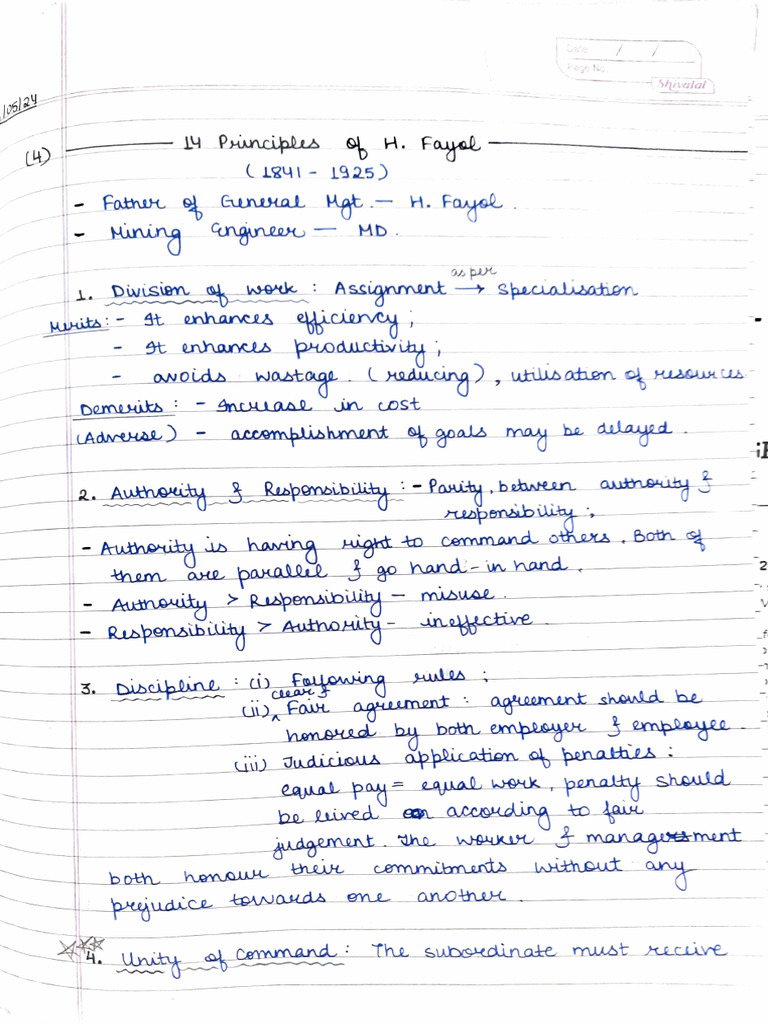 Date / /
Page No.
Shivalal
/05/24
(4) 14 Principles of H. Fayol
(1841 - 1925)
- Father of General Mgt. — H. Fayol.
- Mining Engineer — MD.
as per
1. Division of work : Assignment → Specialisation
Merits : - It enhances efficiency ;
- It enhances productivity ;
- avoids wastage. (reducing), utilisation of resources
Demerits : - Increase in cost
(Adverse) - accomplishment of goals may be delayed.
2. Authority & Responsibility : - Parity, between authority &
responsibility ;
- Authority is having right to command others. Both of
them are parallel & go hand-in hand.
- Authority > Responsibility — misuse.
- Responsibility > Authority - ineffective.
3. Discipline : (i) Following rules ;
clear &
(ii) ^ Fair agreement : agreement should be
honored by both employer & employee.
(iii) Judicious application of penalties :
equal pay = equal work, penalty should
be leived according to fair
judgement. The worker & management
both honour their commitments without any
prejudice towards one another.
4. Unity of Command : The subordinate must receive